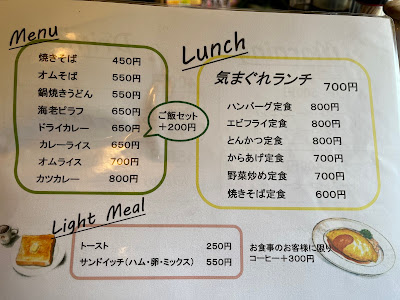 Menu
焼きそば 450円
オムそば 550円
鍋焼きうどん 550円
海老ピラフ 650円
ドライカレー 650円
カレーライス 650円
オムライス 700円
カツカレー 800円
ご飯セット
+200円
Lunch
気まぐれランチ 700円
ハンバーグ定食 800円
エビフライ定食 800円
とんかつ定食 800円
からあげ定食 700円
野菜炒め定食 700円
焼きそば定食 600円
Light Meal
トースト 250円
サンドイッチ(ハム・卵・ミックス) 550円
お食事のお客様に限り
コーヒー+300円